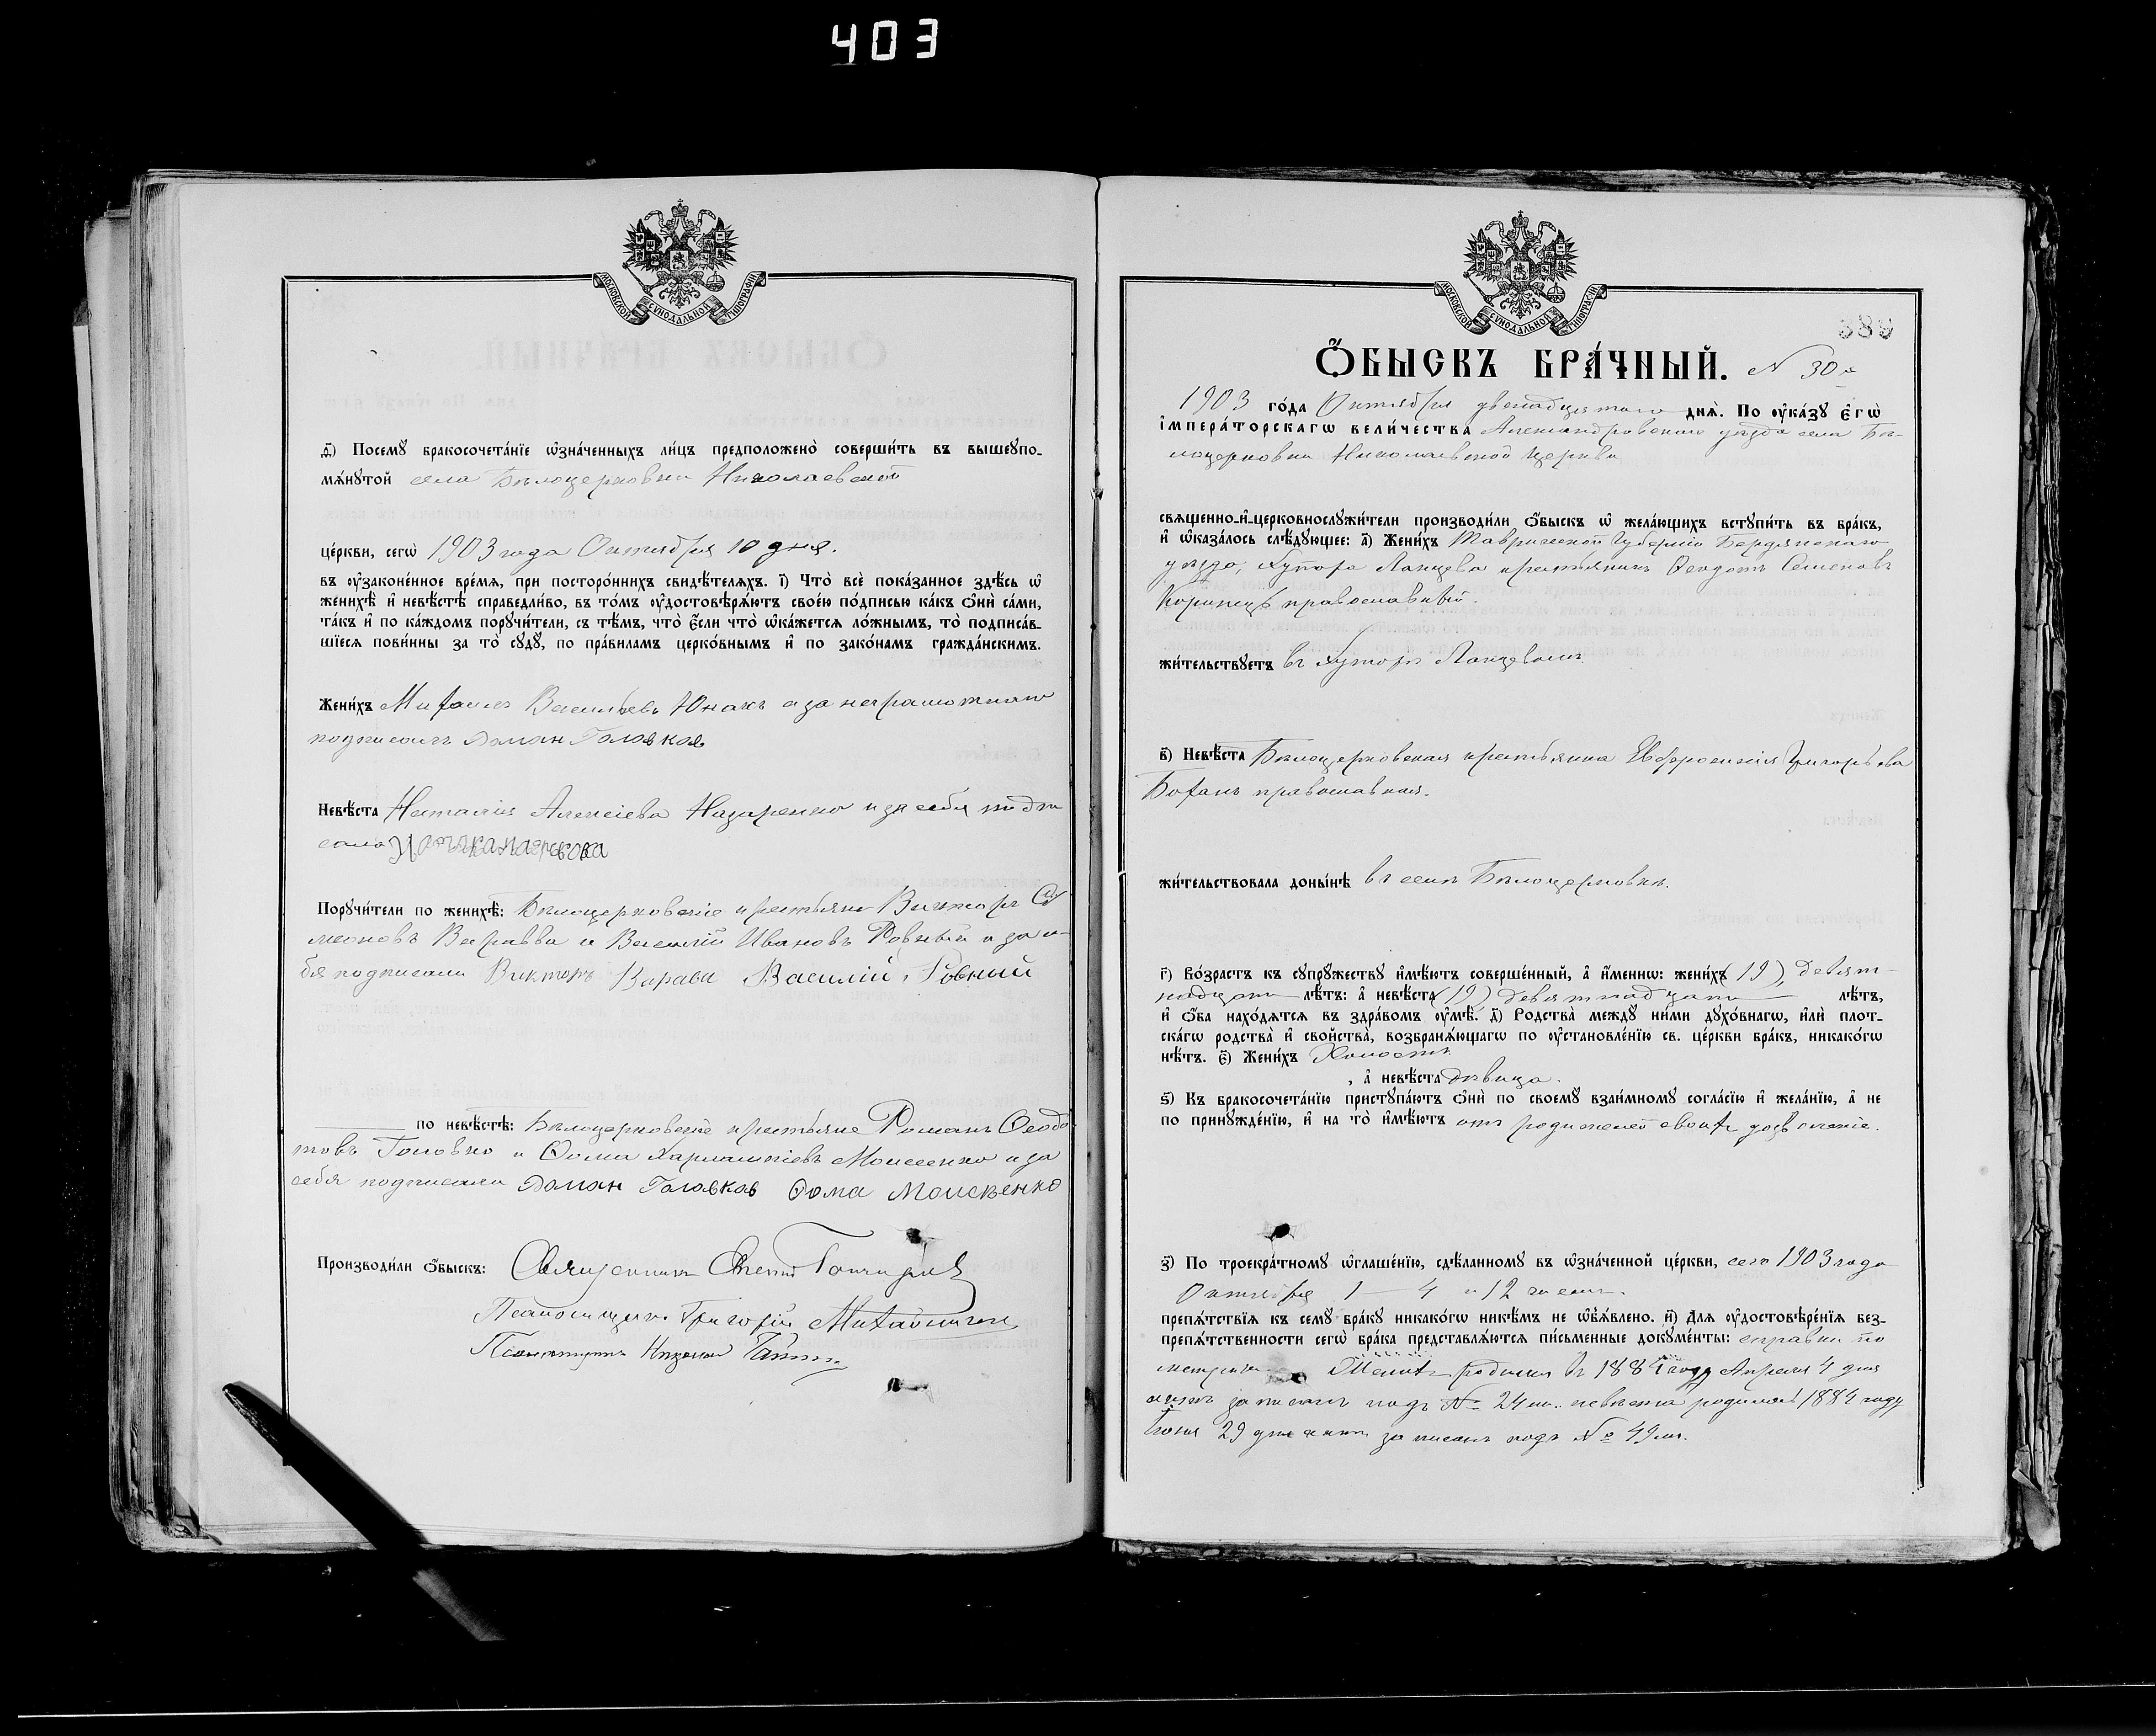 403
МОСКОВСКОЙ СѴНОДАЛЬНОЙ ТИПОГРАФІИ
д҃) Посемꙋ бракосочета́нїе ѡ҆зна́ченныхъ ли́цъ предположено̀ соверши́ть въ вышеꙋпо-
мѧ́нꙋтой села Бѣлоцерковки Николаевской
це́ркви, сегѡ̀ 1903 года Октября 10 дня.
въ ᲂу҆зако́ненное вре́мѧ, при посторо́ннихъ свидѣ́телѧхъ. і҃) Что̀ всѐ пока́занное здѣ́сь ѡ҆
женихѣ̀ и҆ невѣ́стѣ справедли́во, въ то́мъ ᲂу҆достовѣрѧ́ютъ свое́ю по́дписью ка́къ ѻ҆нѝ са́ми,
та́къ и҆ по ка́ждомъ порꙋчи́тели, съ тѣ́мъ, что̀ є҆́сли что̀ ѡ҆ка́жетсѧ ло́жнымъ, то̀ подписа́в-
шїесѧ пови́нны за то̀ сꙋдꙋ̀, по пра́виламъ церко́внымъ и҆ по зако́намъ гражда́нскимъ.
Жени́хъ Михаилъ Васильевъ Юнакъ а за неграмотнаго
подписалъ Доман Головков
Невѣ́ста Наталія Алексіева Назаренко и за себя подпи
сала
Порꙋчи́тели по женихѣ̀: Бѣлоцерковскіе крестьяне Викторъ Си
меоновъ Варавва и Василій Ивановъ Ровный и за се-
бя подписали Викторъ Варава Василий Ровний
по невѣ́стѣ: Бѣлоцерковскіе крестьяне Романъ Ѳеодо
товъ Головко и Ѳома Харлампіевъ Моисеенко и за
себя подписали Доман Головков Ѳома Моисѣенко
Производи́ли ѻ҆́быскъ: Священникъ
Псаломщикъ Григорій Михайличен
Псаломщикъ
МОСКОВСКОЙ СѴНОДАЛЬНОЙ ТИПОГРАФІИ
389
Ѻ҆́БЫСКЪ БРА́ЧНЫЙ. N 30
1903 го́да Октября двенадцатаго днѧ̀. По ᲂу҆ка́зꙋ є҆гѡ̀
і҆мпера́торскагѡ вели́чества Александровскаго уѣзда села Бѣ-
лоцерковки Николаевской церкви
свѧщенно-и҆-церковнослꙋжи́тели производи́ли ѻ҆́быскъ ѡ҆ жела́ющихъ встꙋпи́ть въ бра́къ,
и҆ ѡ҆каза́лось слѣ́дꙋющее: а҃) Жени́хъ Таврической губерніи Бердянскаго
уѣзда, хутора Ланцева крестьянинъ Ѳеодотъ Семеновъ
Коринецъ православный.
жи́тельствꙋетъ въ хуторѣ Ланцевомъ.
в҃) Невѣ́ста Бѣлоцерковская крестьянка Евфросинія Григорьева
Боханъ православная.
жи́тельствовала доны́нѣ въ селѣ Бѣлоцерковкѣ.
г҃) Во́зрастъ къ сꙋпрꙋ́жествꙋ и҆мѣ́ютъ соверше́нный, а҆ и҆́меннѡ: жени́хъ (19) девят-
надцати лѣ́тъ: а҆ невѣ́ста (19) девятнадцати лѣ́тъ,
и҆ ѻ҆́ба нахо́дѧтсѧ въ здра́вомъ ᲂу҆мѣ̀. д҃) Родства̀ междꙋ̀ ни́ми дꙋхо́внагѡ, и҆лѝ плот-
ска́гѡ родства̀ и҆ свойства̀, возбранѧ́ющагѡ по ᲂу҆становле́нїю св. це́ркви бра́къ, никако́гѡ
нѣ́тъ. є҃) Жени́хъ Холостъ
, а҆ невѣ́ста дѣвица.
ѕ҃) Къ бракосочета́нїю пристꙋпа́ютъ ѻ҆нѝ по своемꙋ̀ взаи́мномꙋ согла́сїю и҆ жела́нїю, а҆ не
по принꙋжде́нїю, и҆ на то̀ и҆мѣ́ютъ отъ родителей своихъ дозволеніе.
з҃) По троекра́тномꙋ ѡ҆глаше́нїю, сдѣ́ланномꙋ въ ѡ҆зна́ченной це́ркви, сего 1903 года
Октября 1 4 и 12 числъ.
препѧ́тствїѧ къ семꙋ̀ бра́кꙋ никако́гѡ никѣ́мъ не ѡ҆б̾ѧ́влено. и҃) Длѧ ᲂу҆достовѣре́нїѧ без-
препѧ́тственности сегѡ̀ бра́ка представлѧ́ютсѧ пи́сьменные докꙋме́нты: справки по
метрик Женихъ родился въ 1884 году Апреля 4 дня
актъ записанъ подъ № 24 мъ. невѣста родилась 1884 году
Іюня 29 дня актъ записанъ подъ № 49 мъ.